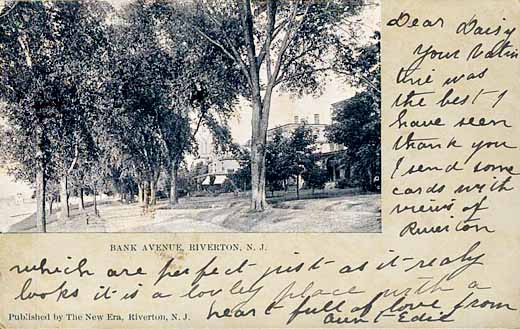 Dear Daisy
Your Valin
tine was
the best I
have seen
thank you
I send some
cards with
views of
Riverton
BANK AVENUE, RIVERTON, N. J.
which are perfect just as it realy
looks it is a lovley place with a
heart full of love from
Aunt Edie
Published by The New Era, Riverton, N. J.